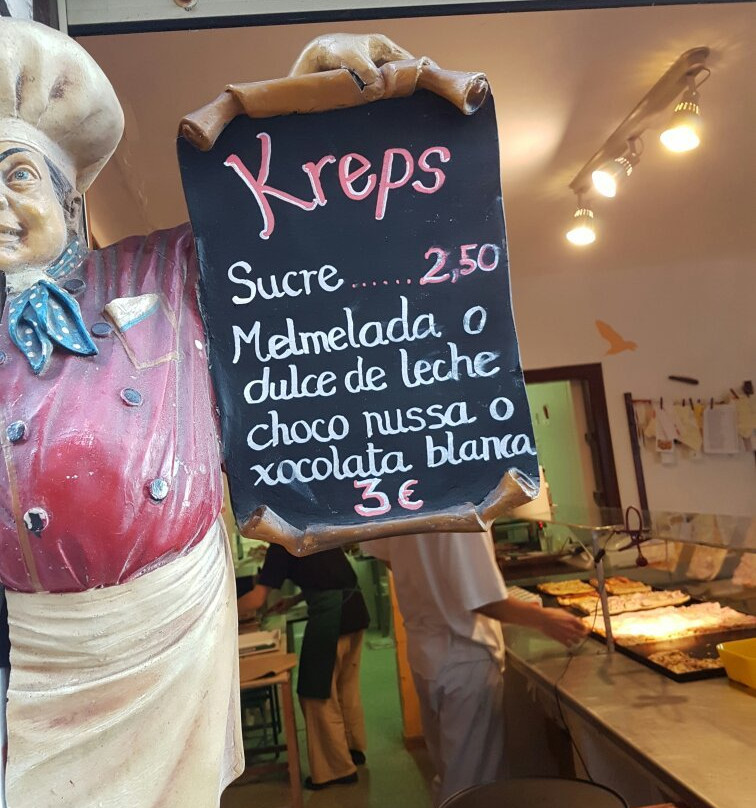 Kreps
Sucre......2,50
Melmelada o
dulce de leche
choco nussa o
xocolata blanca
3 €